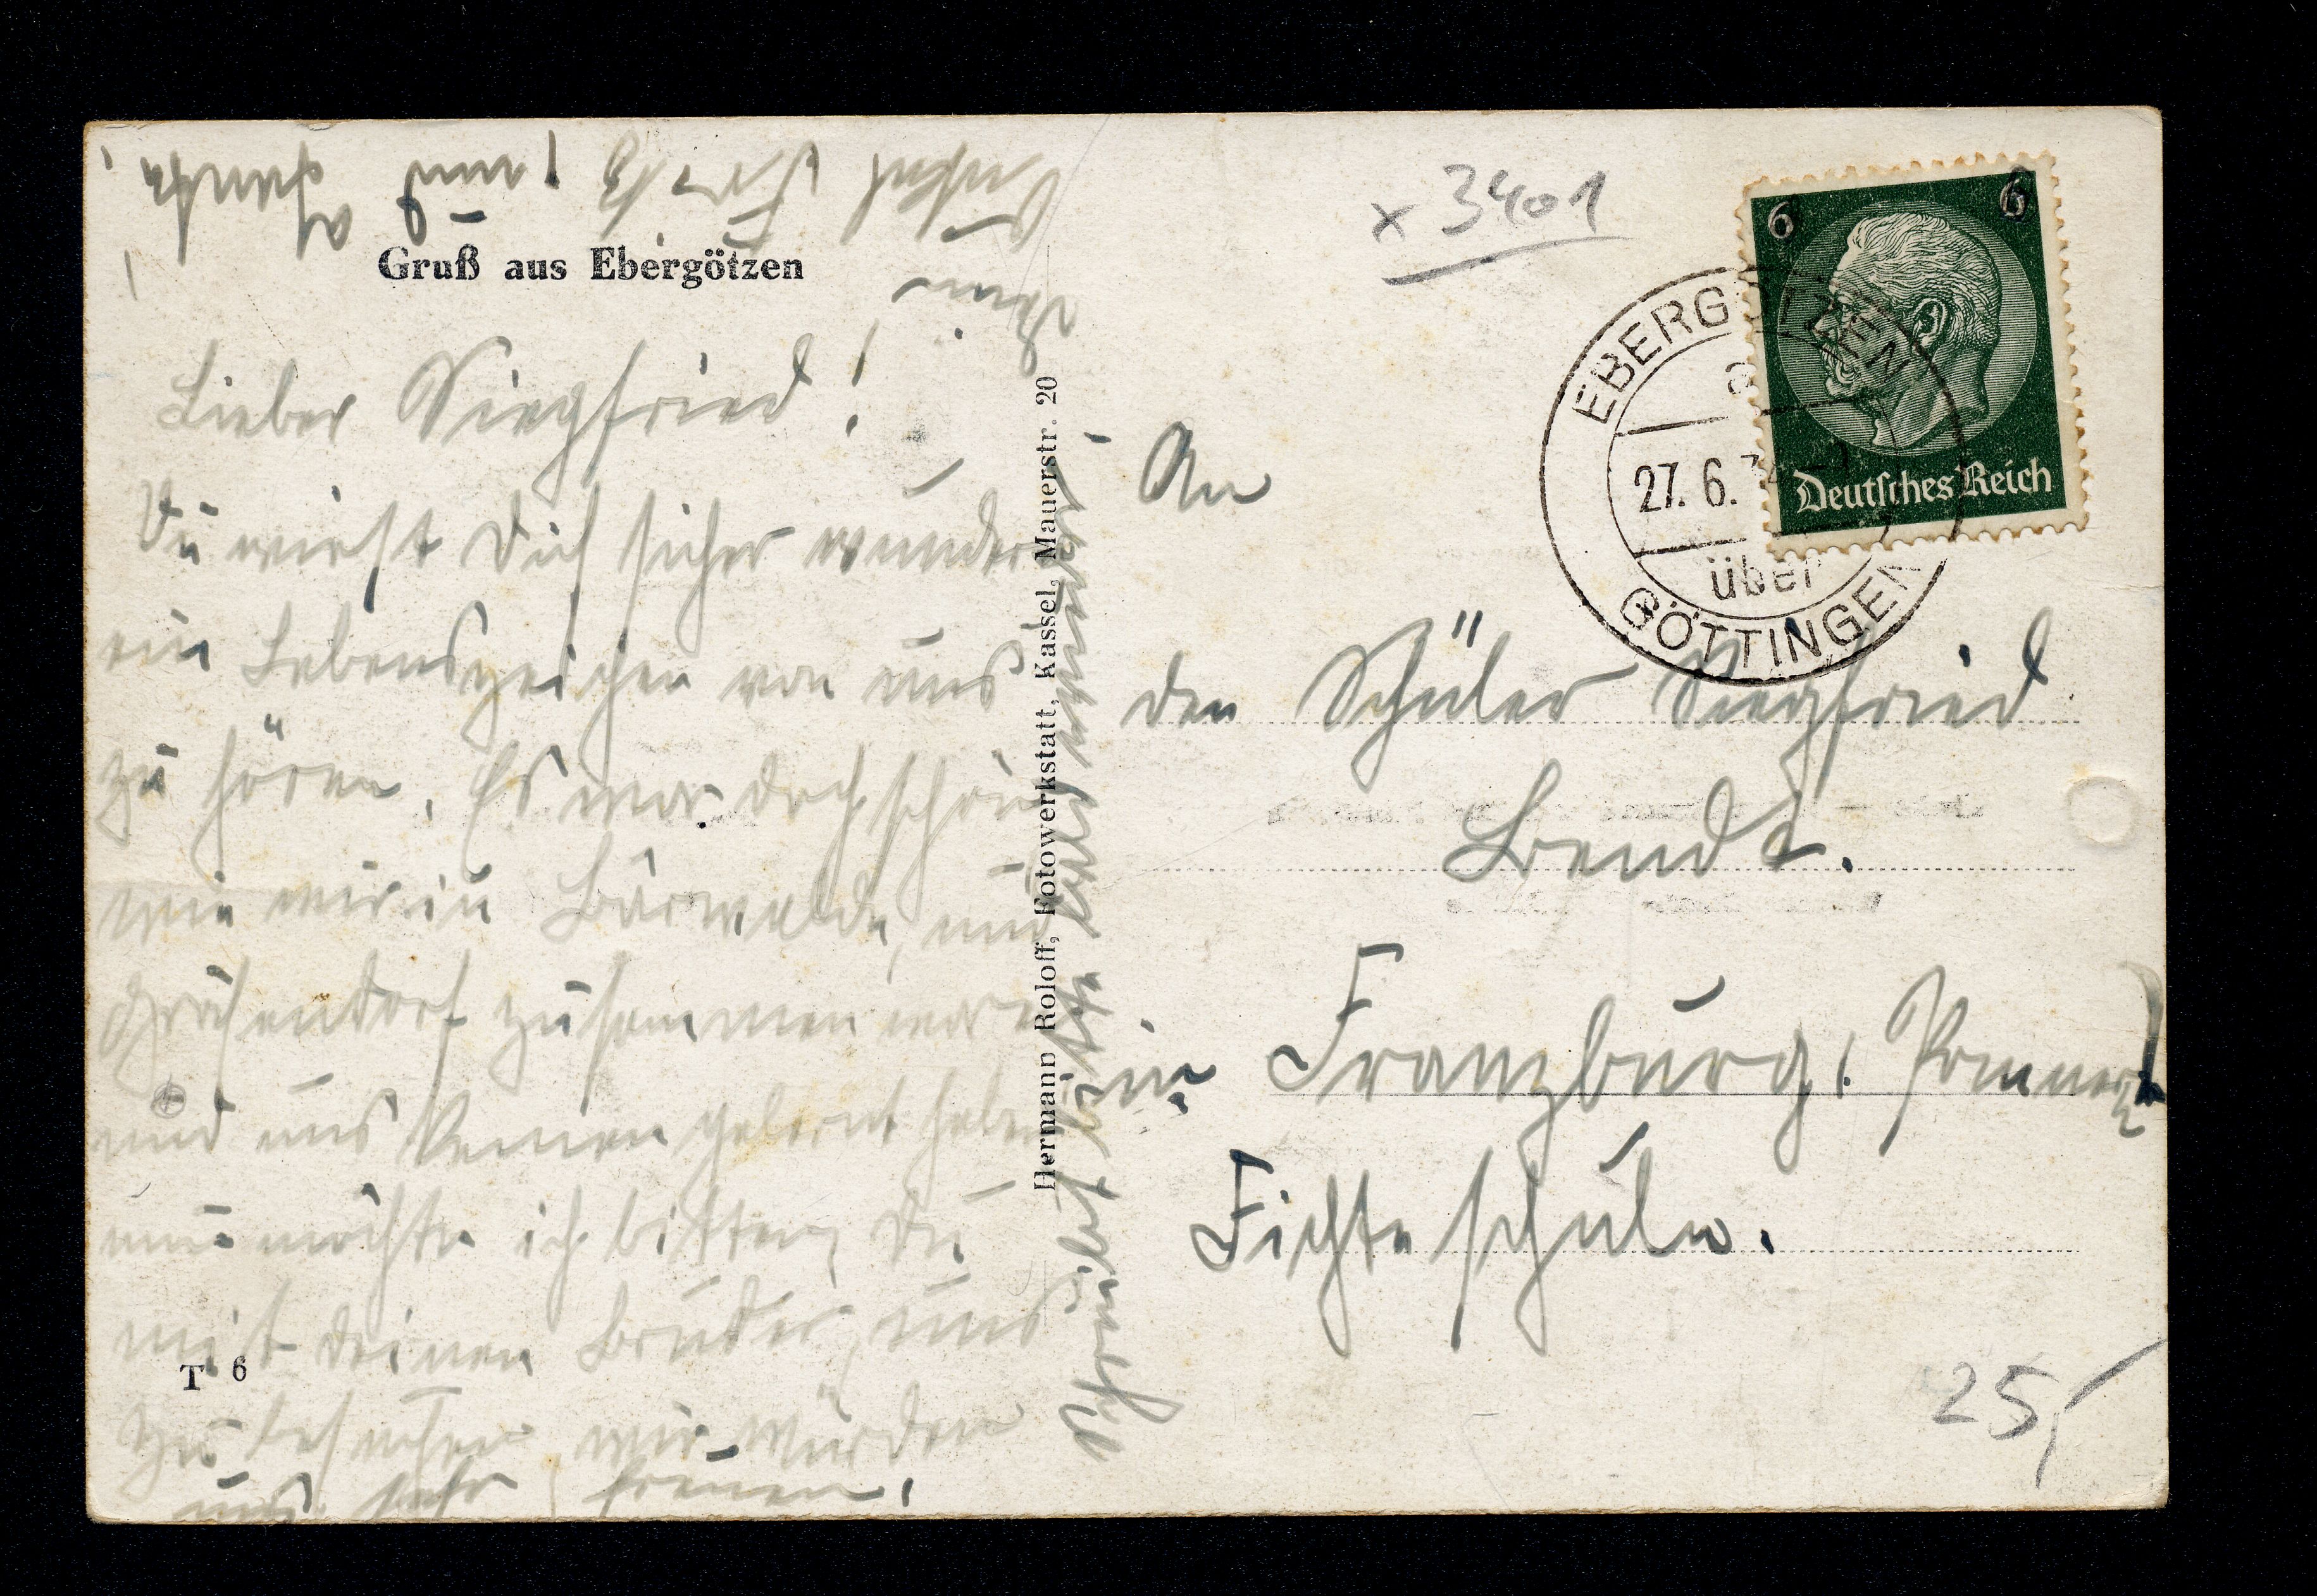 Gruß aus Ebergötzen
Lieber Siegfried!
Du wirst Dich sicher wundern
ein Lebenszeichen von uns
zu hören. Es war doch schön
wie wir in Bärwalde, und
Gräfendorf zusammen waren
und uns kennen gelernt haben
nun möchte ich bitten, Du
mit deinen Bruder, uns
zu besuchen wir würden
uns sehr freuen.
Schreibt bitte bald wieder
Hermann Roloff, Fotowerkstatt, Kassel, Mauerstr. 20
T 6
x 3401
6 6
Deutsches Reich
EBERGÖTZEN
27.6.
über
GÖTTINGEN
An
den Schüler Siegfried
Bendt.
in Franzburg, Pommern
Fichteschule.
25,-